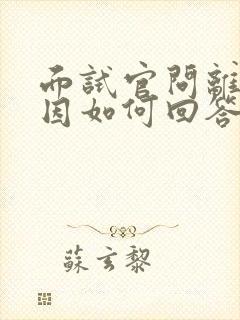 面試官問離
因如何回答
蘇玄黎